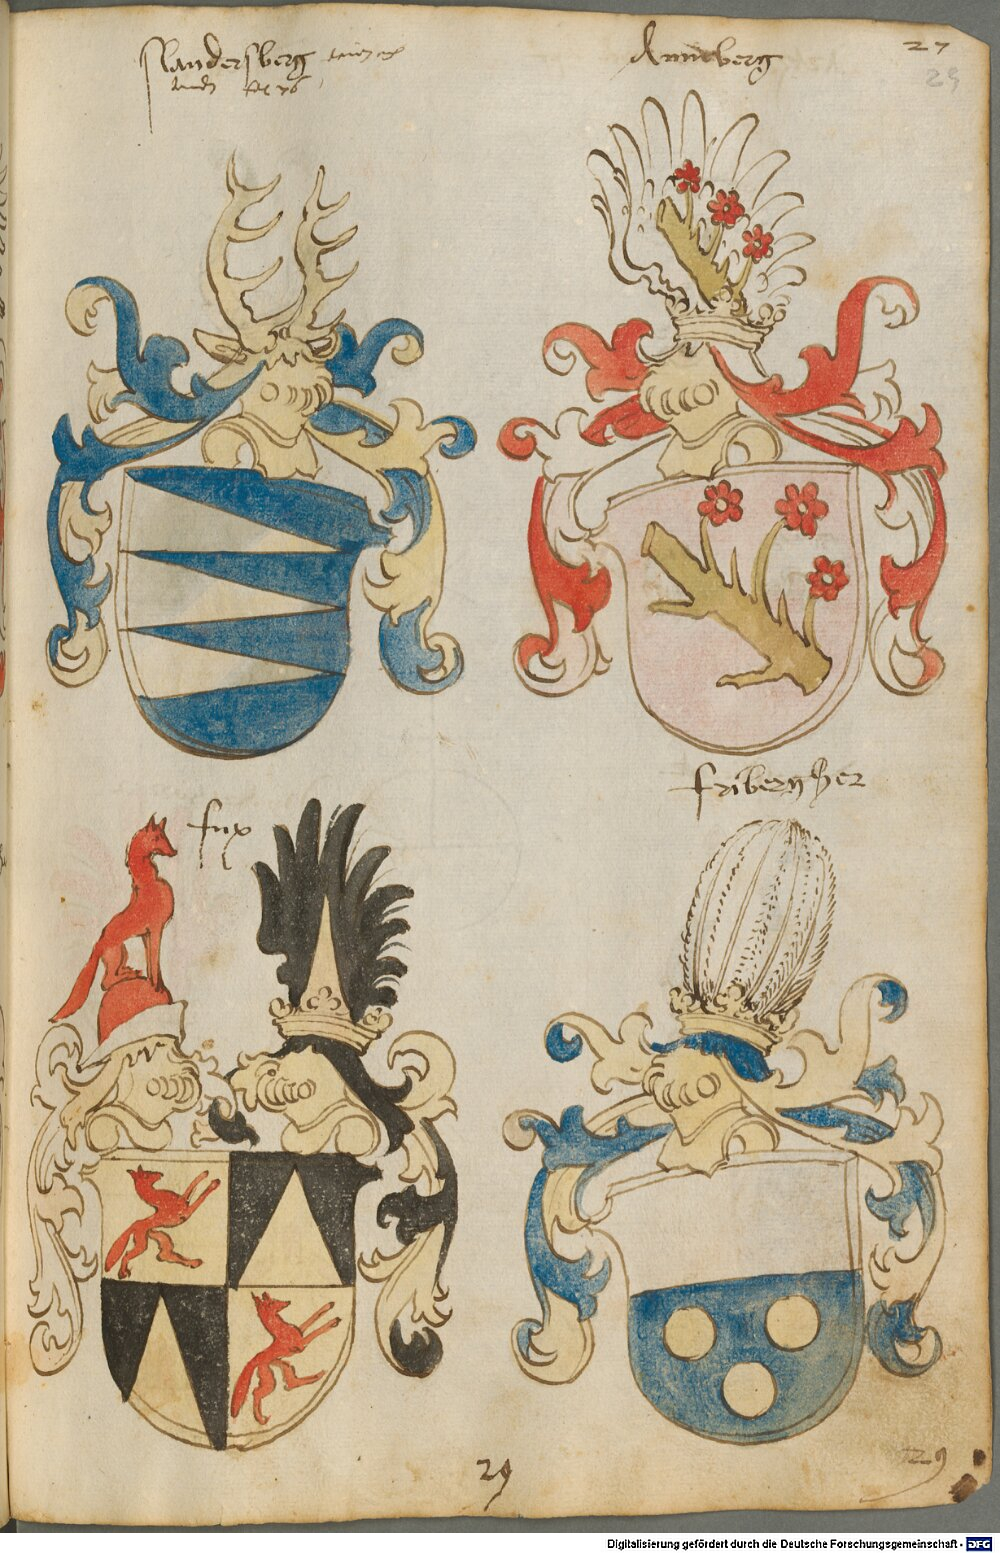 slandersberg
Anneberg
27
29
fux
fribergher
29
29
Digitalisierung gefördert durch die Deutsche Forschungsgemeinschaft - DFG